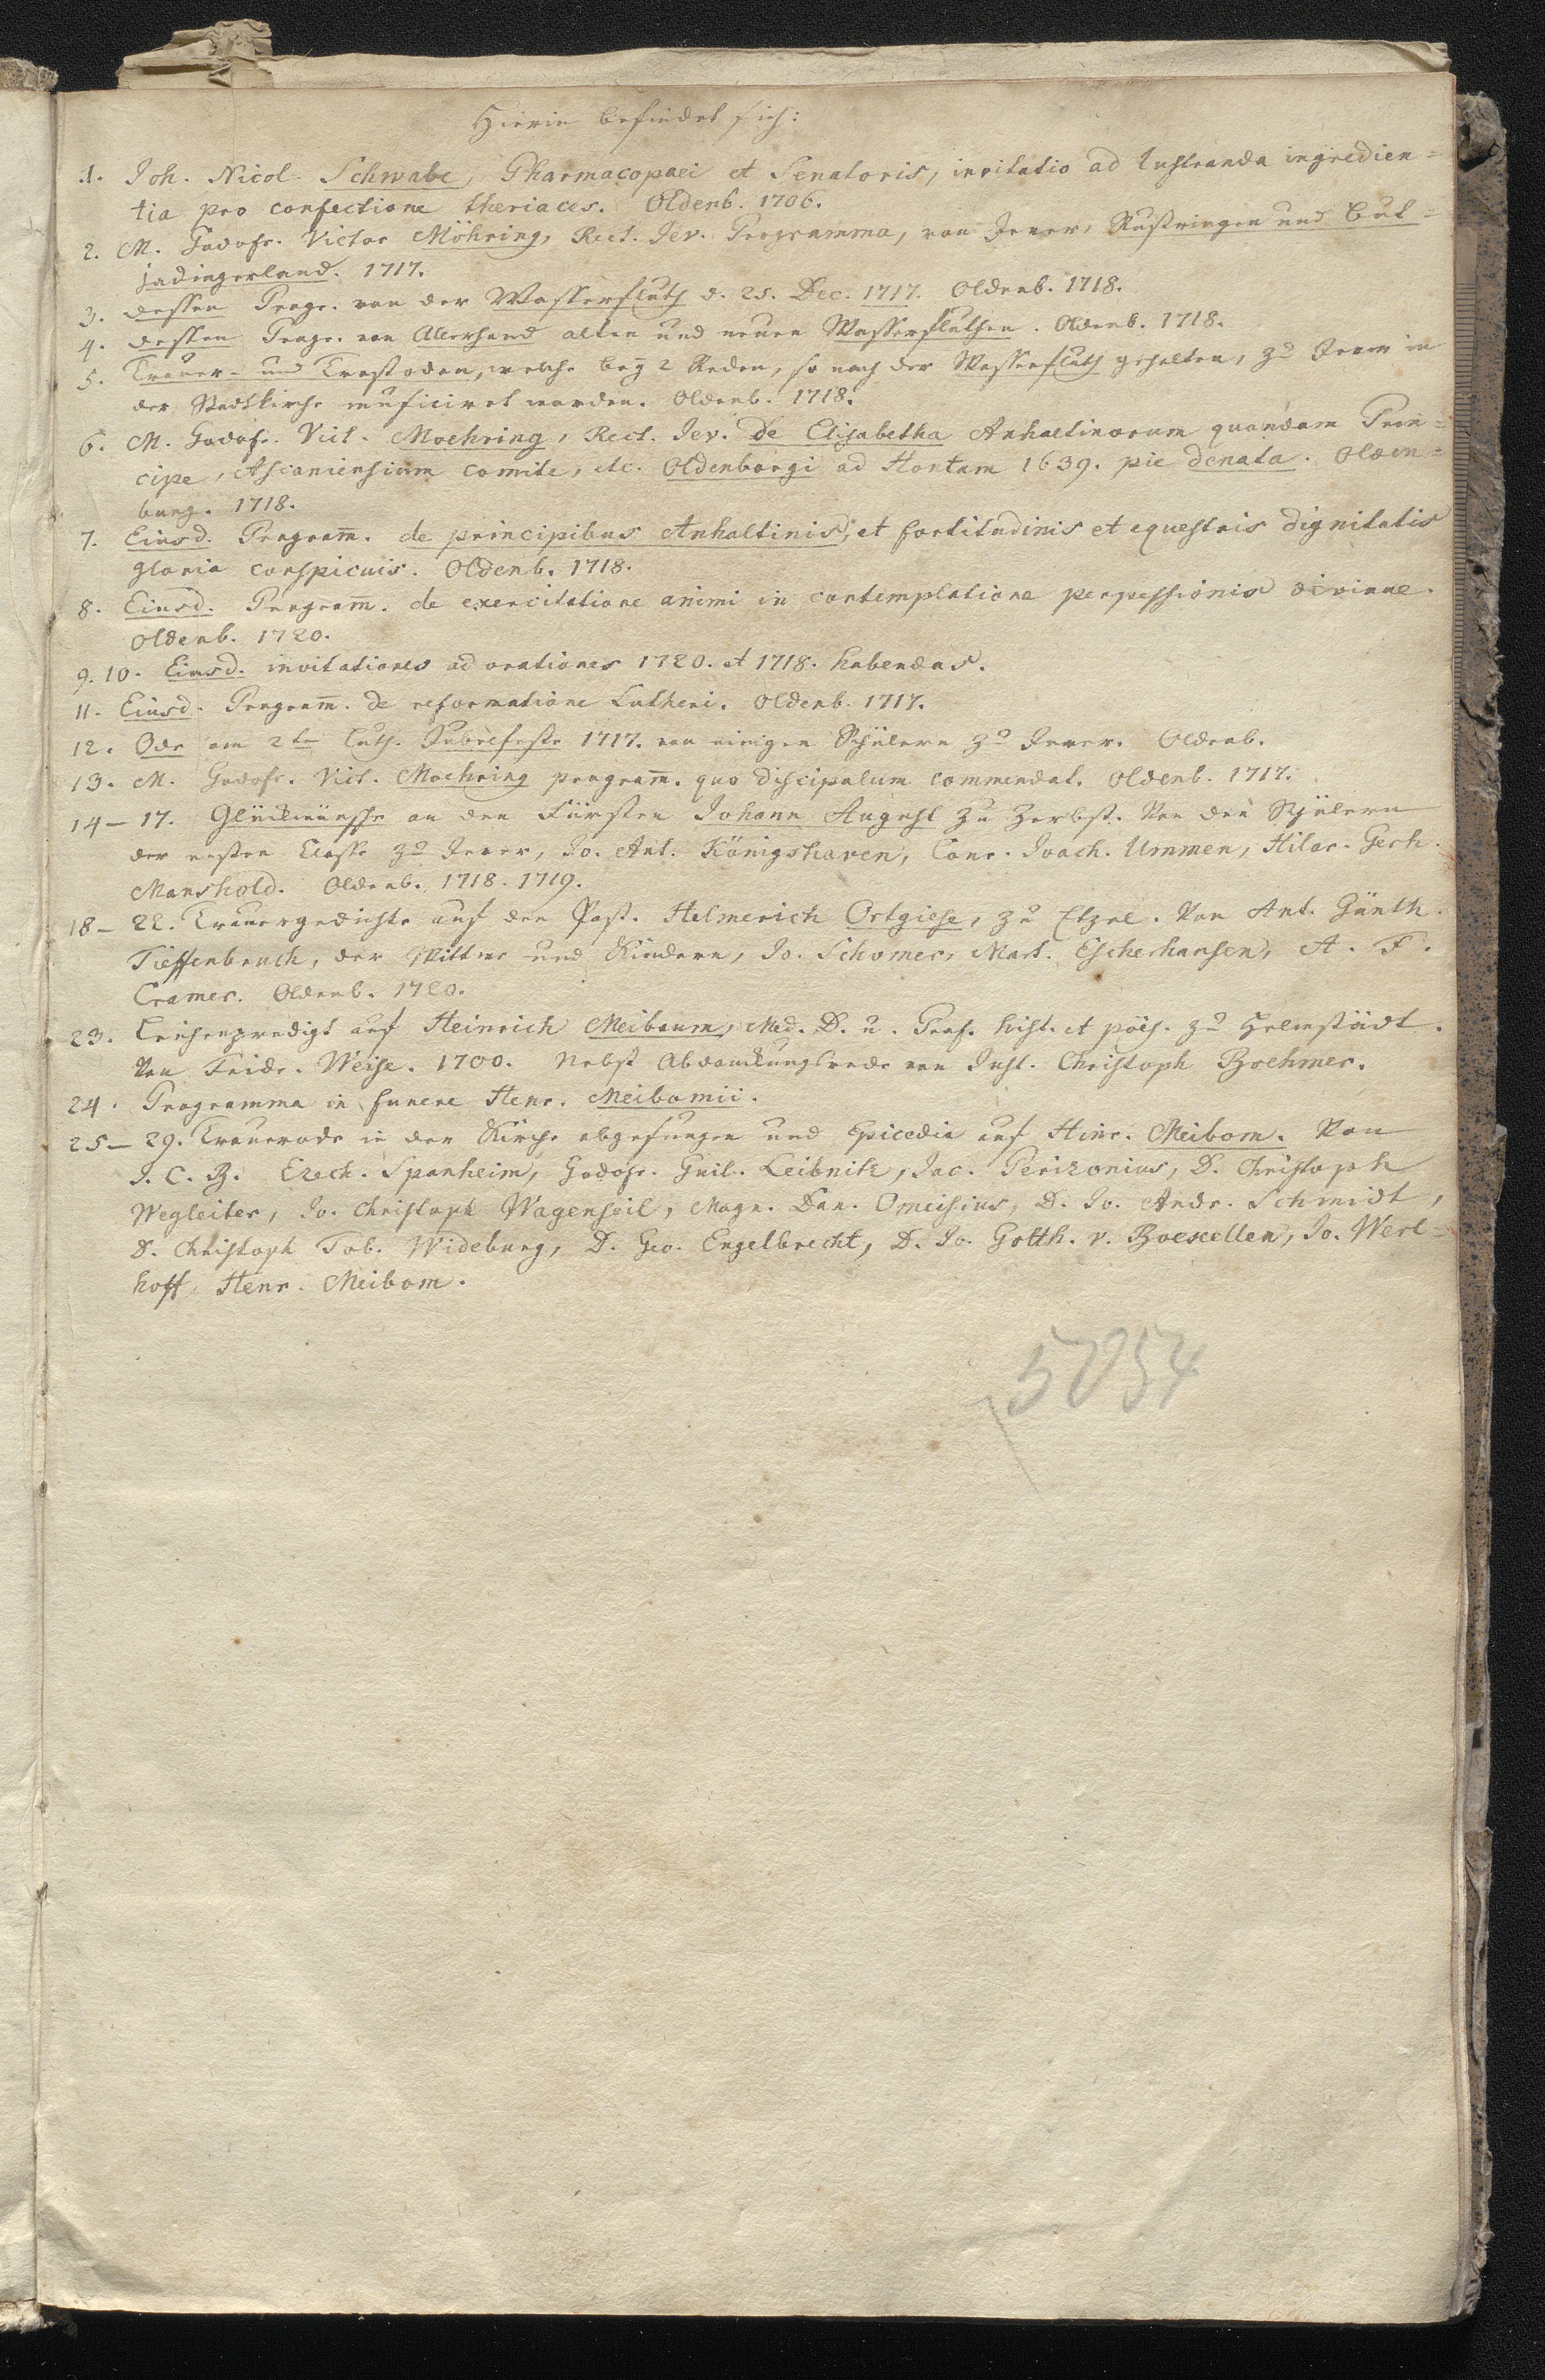 Hierin befindet sich:
1. Joh. Nicol. Schwabe, Pharmacopaei et Senatoris, invitatio ad lustranda ingredien=
tia pro confectione theriaces. Oldenb. 1706.
2. M. Godofr. Victor Möhring, Rect. Jev. Programma, von Jever, Rüstringen und But=
jadingerland. 1717.
3. dessen Progr. von der Wasserfluth d. 25. Dec. 1717. Oldenb. 1718.
4. dessen Progr. von Allerhand alten und neuen Wasserfluthen. Oldenb. 1718.
5. Trauer- und Trostoden, welche bey 2 Reden, so nach der Wasserfluth gehalten, zu Jever in
der Stadtkirche musiciret worden. Oldenb. 1718.
6. M. Godofr. Vict. Moehring, Rect. Jev. de Elisabetha Anhaltinorum quondam Prin=
cipe, Ascaniensium comite, etc. Oldenborgi ad Hontam 1639. pie denata. Olden=
burg. 1718.
7. Eiusd. Program̅. de principibus Anhaltinis, et fortitudinis et equestris dignitatis
gloria conspicuis. Oldenb. 1718.
8. Eiusd. Program̅. de exercitatione animi in contemplatione perpessionis divinae.
Oldenb. 1720.
9. 10. Eiusd. invitationes ad orationes 1720. et 1718. habendas.
11. Eiusd. Program̅. de reformatione Lutheri. Oldenb. 1717.
12. Ode am 2ten Luth. Jubelfeste 1717. von einigen Schülern zu Jever. Oldenb.
13. M. Godofr. Vict. Moehring program̅. quo discipulum commendat. Oldenb. 1717.
14 – 17. Glückwünsche an den Fürsten Johann August zu Zerbst. Von den Schülern
der ersten Classe zu Jever, Jo. Ant. Königshaven, Conr. Joach. Ummen, Hilar. Gerh.
Manshold. Oldenb. 1718. 1719.
18 – 22. Trauergedichte auf den Past. Helmerich Ortgiese, zu Etzel. Von Ant. Günth.
Tieffenbruch, der Wittwe und Kindern, Jo. Schomer, Mart. Escherhausen, A. F.
Cramer. Oldenb. 1720.
23. Leichenpredigt auf Heinrich Meibaum, Med. D. u. Prof. hist. et poës. zu Helmstädt.
Von Fridr. Weise. 1700. Nebst Abdanckungsrede von Just. Christoph Boehmer.
24. Programma in funere Henr. Meibomii.
25 – 29. Trauerode in der Kirche abgesungen und Epicedia auf Hinr. Meibom. Von
J. C. B. Ezech. Spanheim, Godofr. Guil. Leibnitz, Jac. Perizonius, D. Christoph
Wegleiter, Jo. Christoph Wagenseil, Magn. Dan. Omeisius, D. Jo. Andr. Schmidt,
D. Christoph Tob. Wideburg, D. Geo. Engelbrecht, D. Jo. Gotth. v. Boeckellen, Jo. Werl=
hoff, Henr. Meibom.
5054